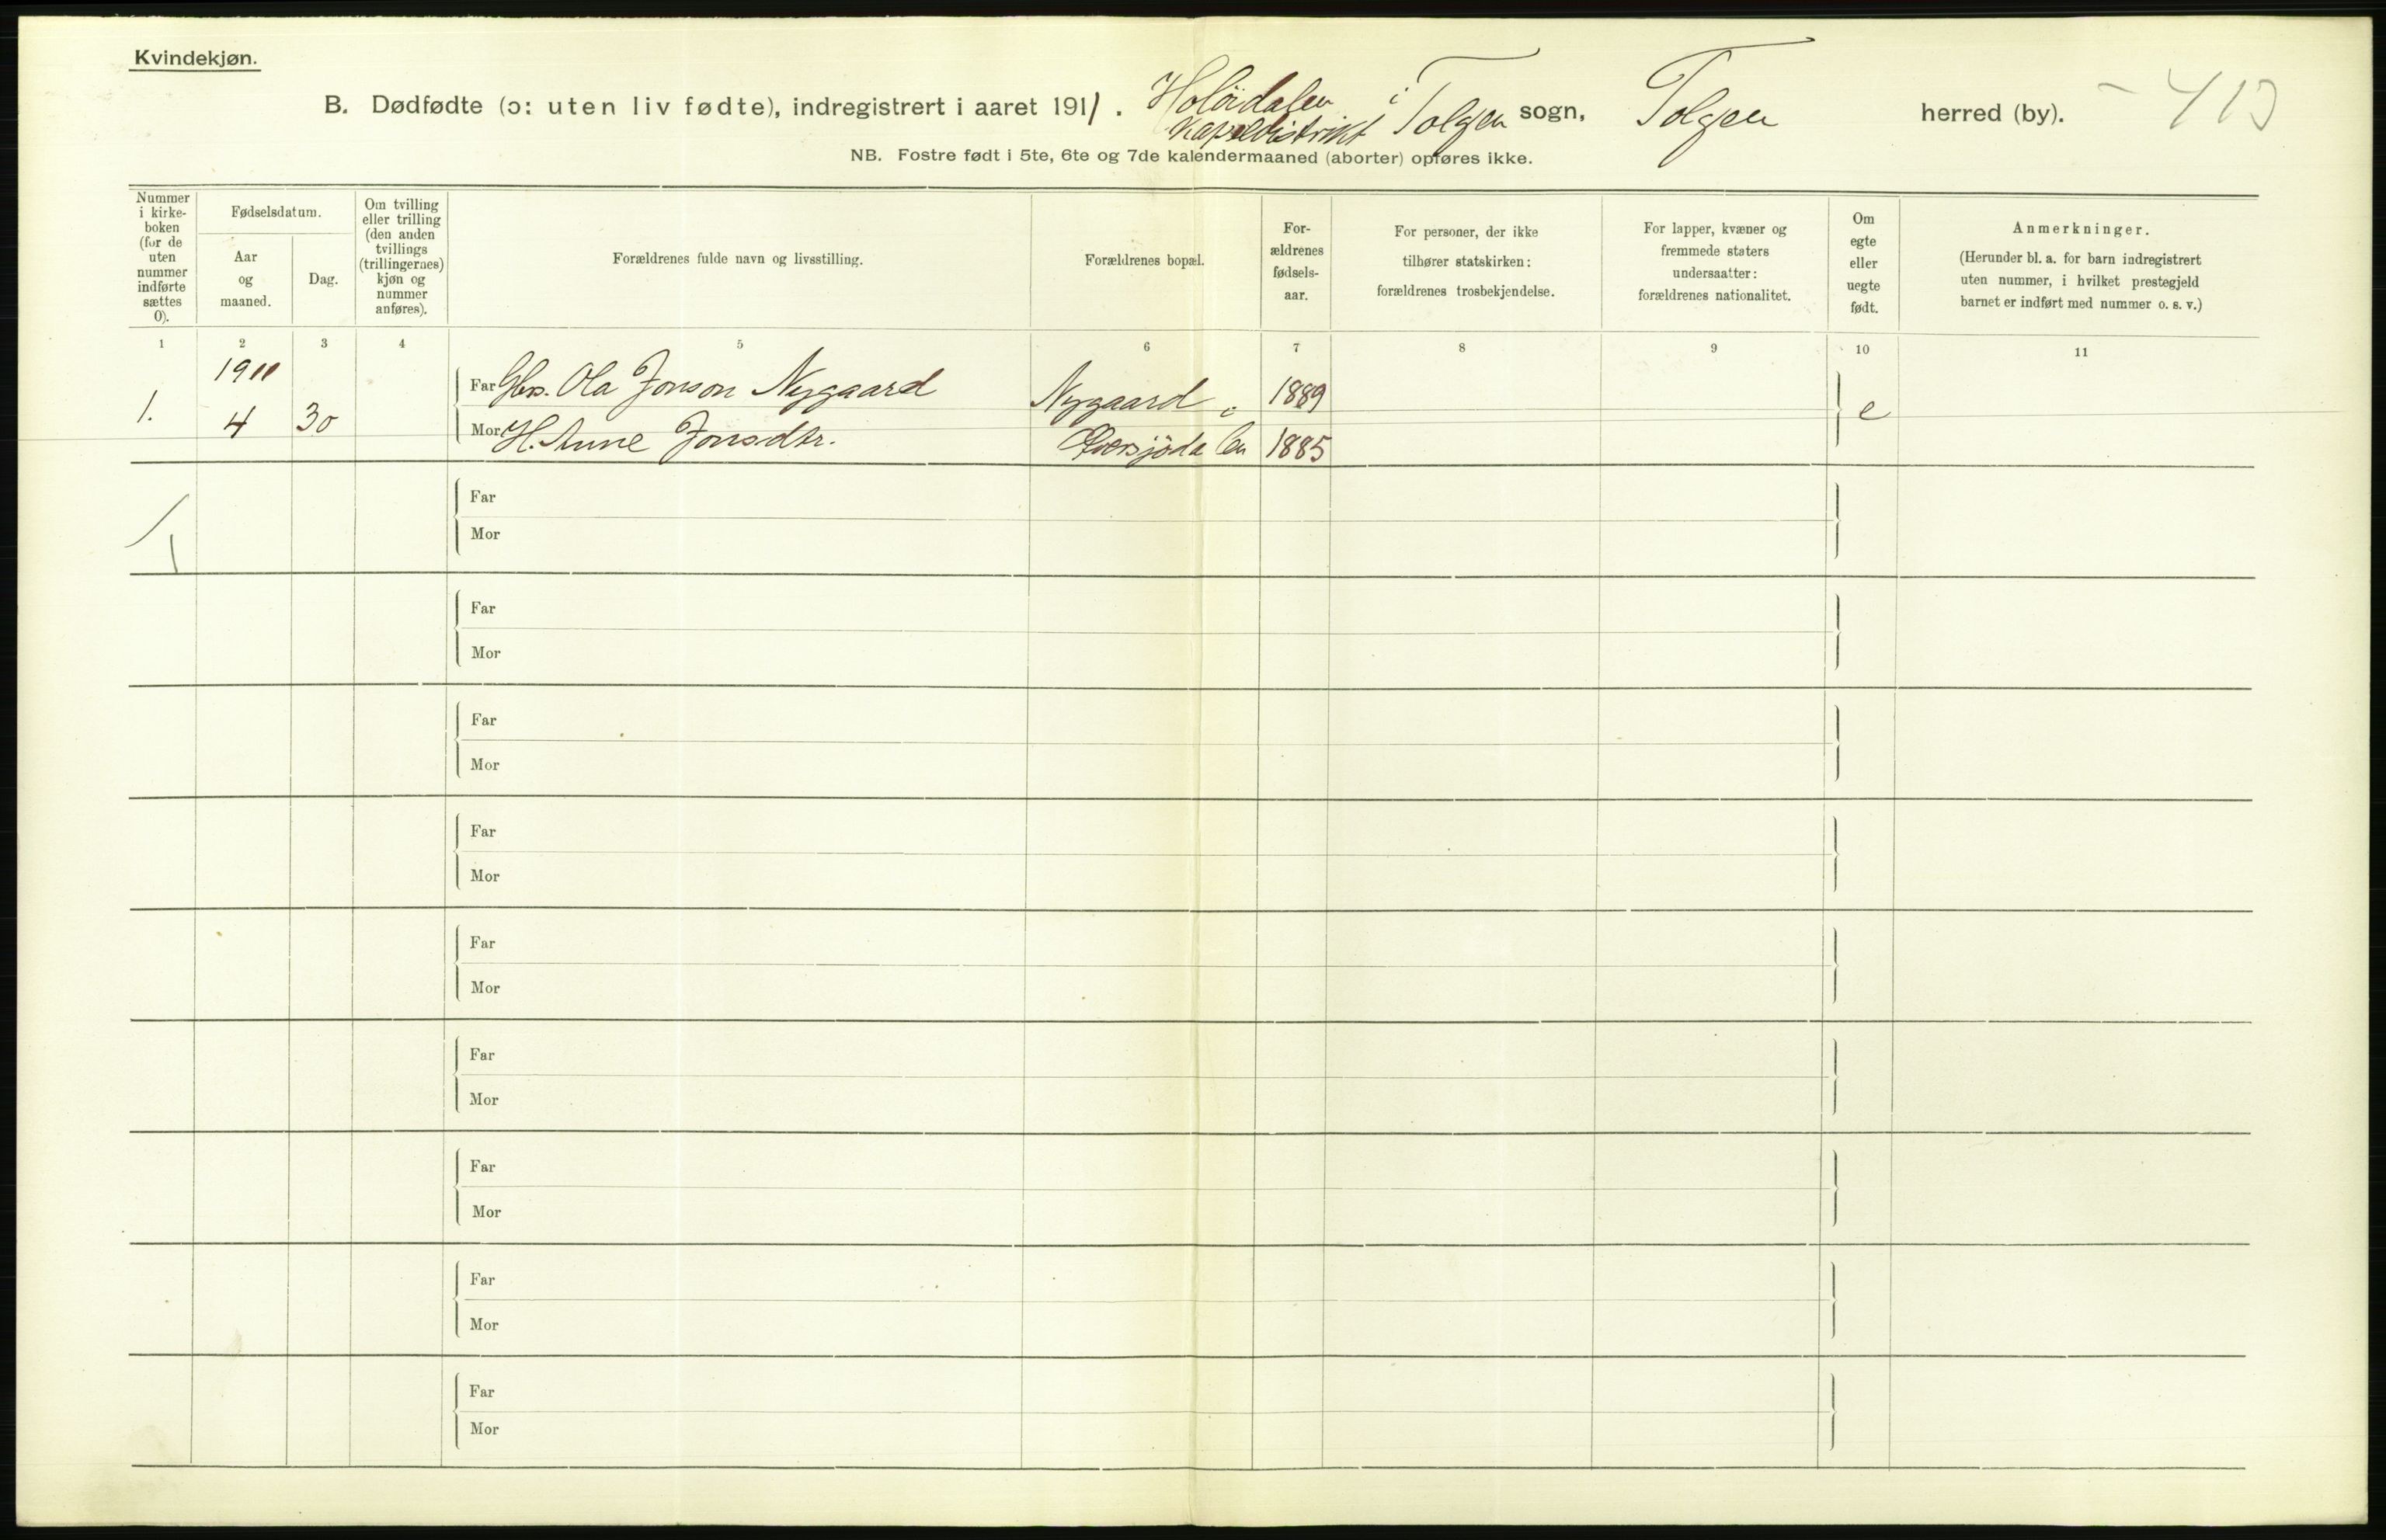 Kvindekjøn.
B. Dødfødte (ɔ: uten liv fødte), indregistrert i aaret 1911. Holöidalen kapeldistrikt i Tolgen sogn, Tolgen herred (by). - 413
NB. Fostre født i 5te, 6te og 7de kalendermaaned (aborter) opføres ikke.
Nummer
i kirke-
boken
(for de
uten
nummer
indførte
sættes
0).
Fødselsdatum.
Aar
og
maaned.
Dag.
Om tvilling
eller trilling
(den anden
tvillings
(trillingernes)
kjøn og
nummer
anføres).
Forældrenes fulde navn og livsstilling.
Forældrenes bopæl.
For-
ældrenes
fødsels-
aar.
For personer, der ikke
tilhører statskirken:
forældrenes trosbekjendelse.
For lapper, kvæner og
fremmede staters
undersaatter:
forældrenes nationalitet.
Om
egte
eller
uegte
født.
Anmerkninger.
(Herunder bl. a. for barn indregistrert
uten nummer, i hvilket prestegjeld
barnet er indført med nummer o. s. v.)
1 2 3 4 5 6 7 8 9 10 11
1911
1. 4 30
Far Gbr. Ola Jonson Nygaard Nygaard i 1889 e
Mor H. Anne Jonsdtr. 1885
1
Far
Mor
Far
Mor
Far
Mor
Far
Mor
Far
Mor
Far
Mor
Far
Mor
Far
Mor
Far
Mor